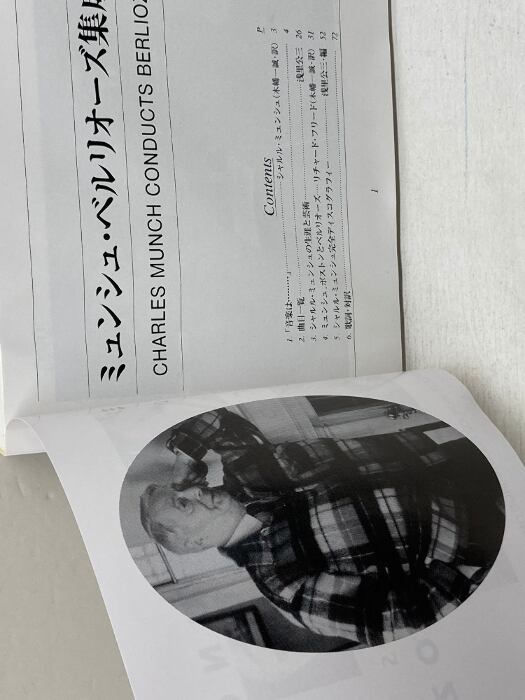 ミュンシュ・ベルリオーズ集成
CHARLES MUNCH CONDUCTS BERLIOZ
Contents
P
1 「音楽は………」…………シャルル・ミュンシュ(木幡一誠・訳) 3
2. 曲目一覧 4
3. シャルル・ミュンシュの生涯と芸術…………浅里公三 26
4. ミュンシュ、ボストンとベルリオーズ……リチャード・フリード(木幡一誠・訳) 31
5 シャルル・ミュンシュ完全ディスコグラフィー…………浅里公三・編 52
6. 歌詞・対訳 72
1